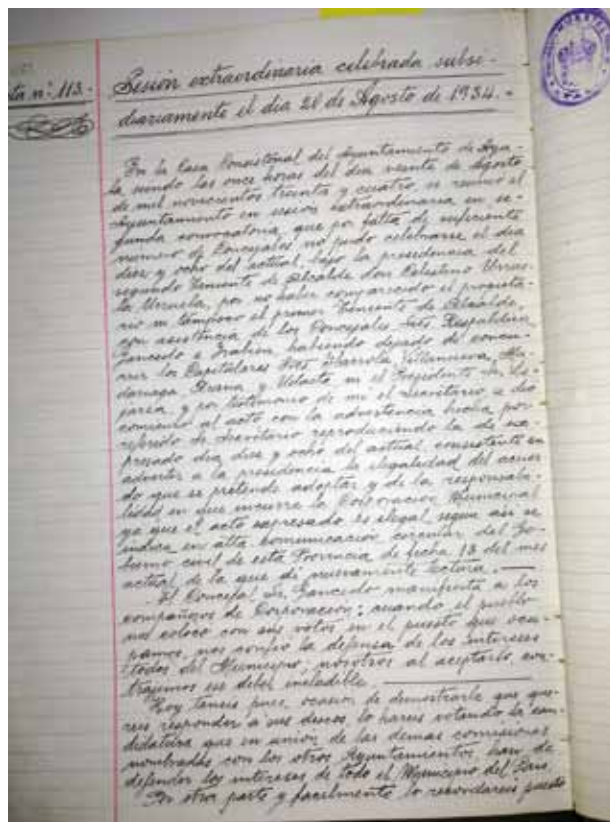 ta nº. 113.-
Sesión extraordinaria celebrada subsi-
diariamente el dia 20 de Agosto de 1934.-
En la Casa Consistorial del Ayuntamiento de Aya-
la siendo las once horas del dia veinte de Agosto
de mil novecientos treinta y cuatro, se reunió el
Ayuntamiento en sesión extraordinaria en se-
gunda convocatoria, que por falta de suficiente
numero de Concejales no pudo celebrarse el dia
diez y ocho del actual, bajo la presidencia del
segundo Teniente de Alcalde don Celestino Urrus-
la Urruela, por no haber comparecido el propieta-
rio ni tampoco el primer Teniente de Alcalde,
con asistencia de los Concejales Sres. Respaldiza,
Sancedo e habiendo dejado de concu-
rrir los Capitulares Sres Ibarrola, Villanueva,
y Ugarte, ni el Presidente
y por testimonio de mi el Secretario se dio
comienzo al acto con la advertencia hecha por
referido Secretario reproduciendo la de ex-
presado dia diez y ocho del actual, consistente en
advertir a la presidencia la ilegalidad del acuer-
do que se pretende adoptar y de la responsabi-
lidad en que incurre la Corporacion Municipal
ya que el acto expresado es ilegal segun asi se
indica en alta comunicacion circular del Go-
bierno civil de esta Provincia de fecha 13 del mes
actual de la que di nuevamente lectura.
El Concejal Sr. Sancedo manifiesta a los
compañeros de Corporacion: cuando el pueblo
nos coloco con sus votos en el puesto que ocu-
pamos, nos confio la defensa de los intereses
todos del Municipio; nosotros al aceptarlo, con-
trajimos ese deber ineludible.
Hoy teneis pues, ocasion de demostrarle que que-
reis responder a sus deseos, lo hareis votando la can-
didatura que en union de las demas comisiones
nombradas con los otros Ayuntamientos, han de
defender los intereses de todo el Municipio del Pais.
Por otra parte y facilmente lo recordareis puesto